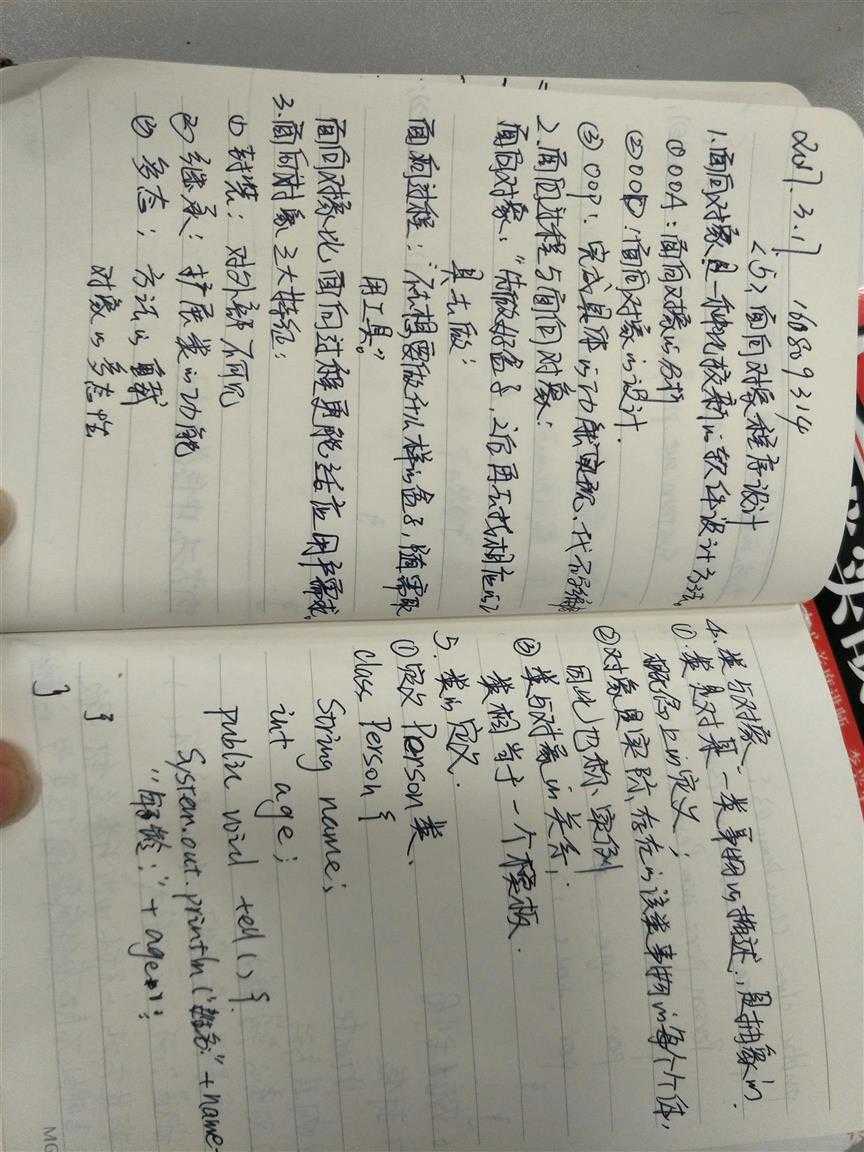 2017.3.17 168809314
<5>面向对象程序设计
1.面向对象是一种比较新的软件设计方法。
①OOA：面向对象的分析
②OOD：面向对象的设计.
③OOP：完成具体的功能实现、代码编
2.面向过程与面向对象：
面向对象："先做好盒子，之后再去找相应的工
具去做；
面向过程："你想要做什么样的盒子，随需取
用工具"。
面向对象比面向过程更能适应用户需求。
3.面向对象三大特征：
①封装：对外部不可见
②继承：扩展类的功能
③多态：方法的重载
对象的多态性
4.类与对象、
①.类是对某一类事物的描述，是抽象的.
概念上的定义；
②对象是实际存在的该类事物的每个个体，
因此也称、实例
③类与对象的关系；
类相当于一个模板.
5.类的定义.
①定义Person类、
class Person {
String name;
int age;
public void tell() {
System.out.println("姓名:" + name
"年龄:" + age);
}
}